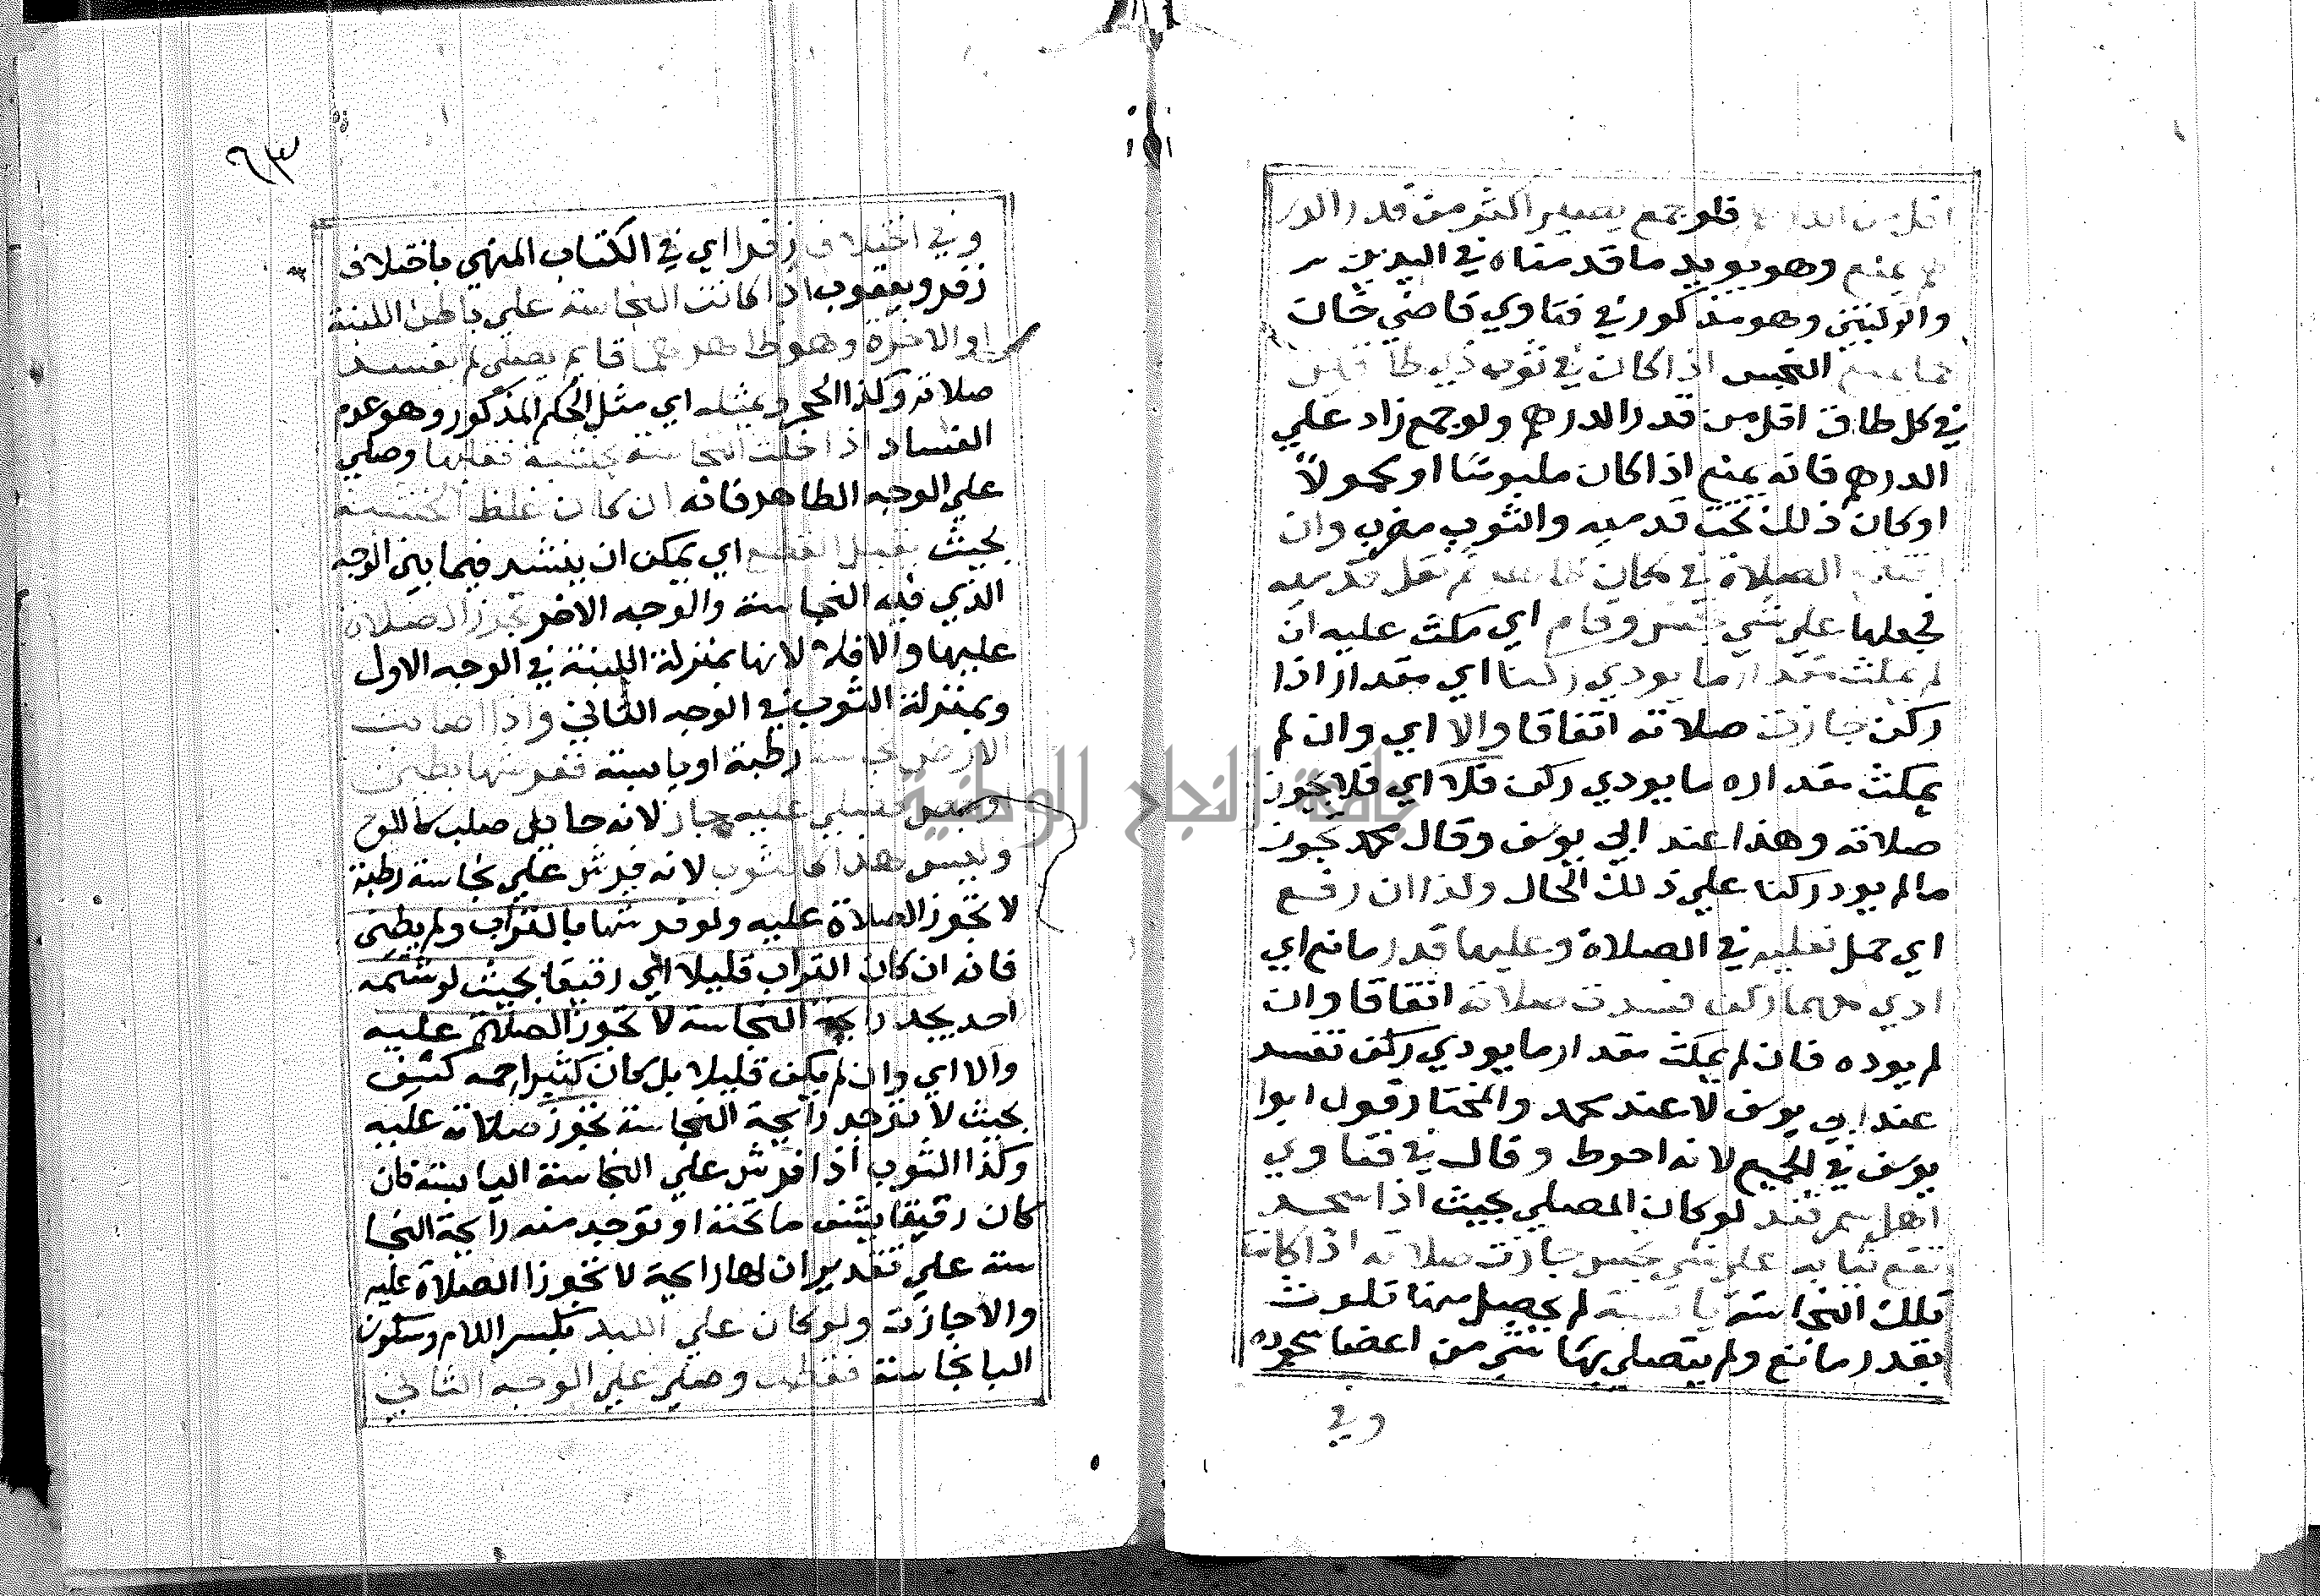 اقل من الدرهم فلو جمع يصير اكثر من قدر الدر
هم يمنع وهو يويد ما قدمناه في اليدين
والركبتين وهو مذكور في فتاوي قاضي خان
النجس اذا كان في ثوب ذي طاقين
في كل طاق اقل من قدر الدرهم ولو جمع زاد علي
الدرهم فانه يمنع اذا كان ملبوسا او محمولاً
او كان ذلك تحت قدميه والثوب مضرب وان
افتتح الصلاة في مكان طاهر ثم نقل قدميه
فجعلها علي شي نجس وقام اي مكث عليه ان
لم يمكث مقدار ما يودي ركنا اي مقدار اذا
ركن جازت صلاته اتفاقا والا اي وان لم
يمكث مقداره ما يودي ركن فلا اي فلا يجوز
صلاته وهذا عند ابي يوسف وقال محمد تجوز
ما لم يود ركنا علي ذلك الحال ولذا ان رفع
اي حمل نعليه في الصلاة وعليها قدر مانع اي
ادي معهما ركن فسدت صلاته اتفاقا وان
لم يوده فان لم يمكث مقدار ما يودي ركن تفسد
عند ابي يوسف لا عند محمد والمختار قول ابوا
يوسف في الجميع لانه احوط وقال في فتاوي
اهل سمرقند لو كان المصلي بحيث اذا سجد
تقع ثيابه علي شي نجس جازت صلاته اذا كانت
تلك النجاسة يابسة لم يحصل منها تلوث
بقدر مانع ولم يتصل بها شي من اعضا سجوده
وفي
٩٣
وفي اختلاف زفر اي في الكتاب المنهي باختلاف
زفر ويعقوب اذا كانت النجاسة علي باطن اللبنة
او الاجرة وهو ظاهرهما قايم يصلي لم تفسد
صلاته وكذا الحجر وبمثله اي مثل الحكم المذكور وهو عدم
الفساد اذا حلت النجاسة بخشبة فقلبها وصلي
علي الوجه الطاهر فانه ان كان غلظ الخشبة
بحيث يقبل القطع اي يمكن ان ينشر فيما بين الوجه
الذي فيه النجاسة والوجه الاخر تجوز الصلاة
عليها والا فلا لانها بمنزلة اللبنة في الوجه الاول
وبمنزلة الثوب في الوجه الثاني واذا اصابت
الارض نجاسة رطبة او يابسة ففرشها بطين
او بجص فصلي عليه جاز لانه حايل صلب كاللوح
وليس هذا كالثوب لانه فرش علي نجاسة رطبة
لا تجوز الصلاة عليه ولو فرشها بالتراب ولم يطين
فانه ان كان التراب قليلا اي رقيقا بحيث لو شمه
احد يجد رايحة النجاسة لا تجوز الصلاة عليه
والا اي وان لم يكن قليلا بل كان كثيرا كثف
بحيث لا توجد رايحة النجاسة تجوز صلاته عليه
وكذا الثوب اذا فرش علي النجاسة اليابسة فان
كان رقيقا يشف ما تحته او توجد منه رايحة النجا
سة علي تقدير ان لها رايحة لا تجوز الصلاة عليه
والا جازت ولو كان علي اللبد بكسر اللام وسكون
البا نجاسة فقلب وصلي علي الوجه الثاني
جامعة النجاح الوطنية